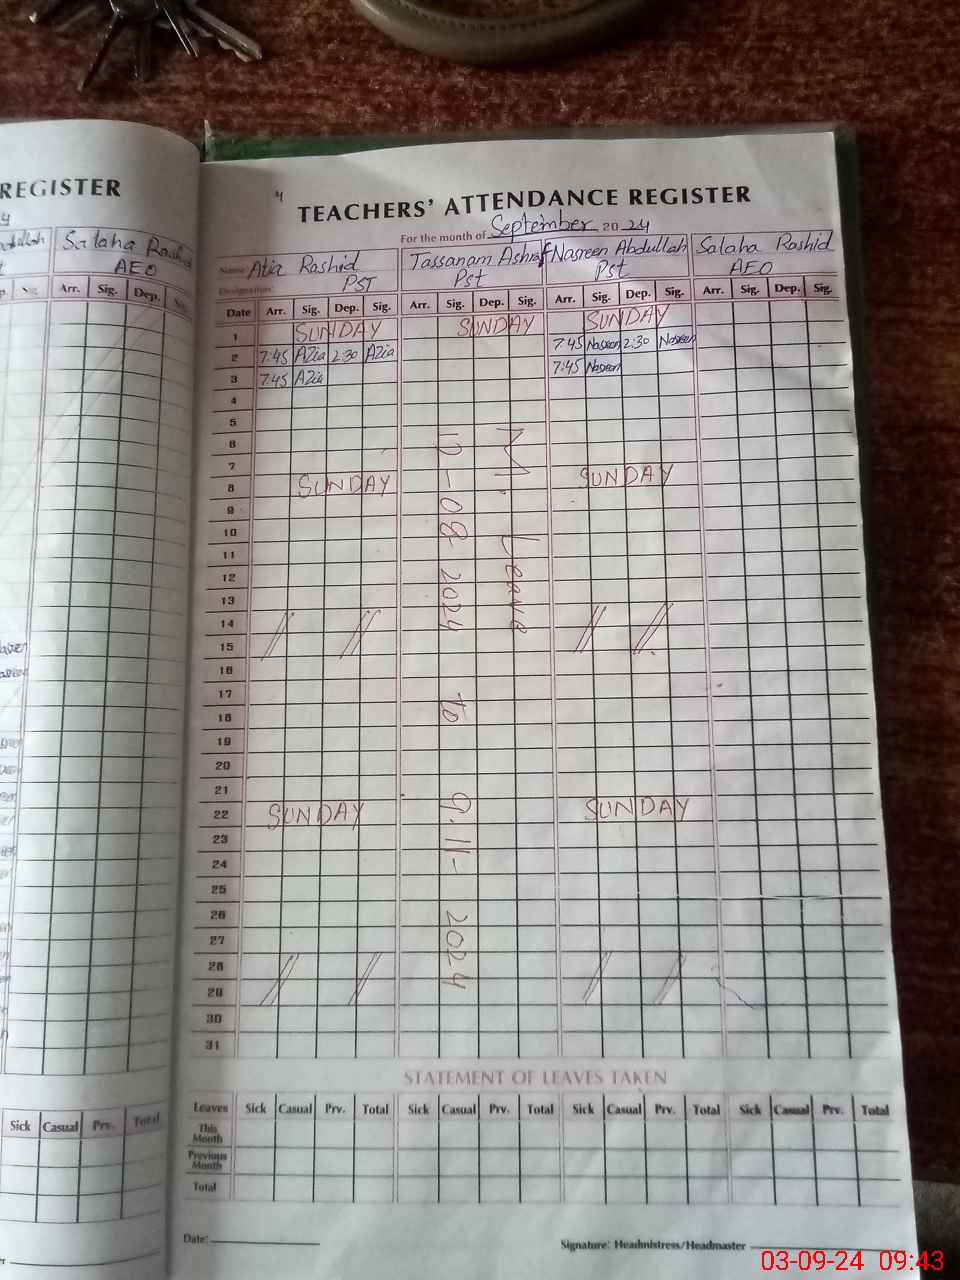 REGISTER
Salaha Rashid
AEO
Arr. Sig. Dep. Sig.
Sick Casual Prv. Total
4
TEACHERS' ATTENDANCE REGISTER
For the month of September 20 24
Name Atia Rashid Tassanam Ashraf Nasreen Abdullah Salaha Rashid
Designation: PST Pst Pst AEO
Date Arr. Sig. Dep. Sig. Arr. Sig. Dep. Sig. Arr. Sig. Dep. Sig. Arr. Sig. Dep. Sig.
1 SUNDAY SUNDAY SUNDAY
2 7:45 Azia 2:30 Azia 7:45 Nasreen 2:30 Nasreen
3 7:45 Azia 7:45 Nasreen
4
5
6
7
8 SUNDAY SUNDAY
9
10
11
12
13
14
15
16
17
18
19
20
21
22 SUNDAY SUNDAY
23
24
25
26
27
28
29
30
31
M. Leave
12-08 2024 to 9.11-2024
STATEMENT OF LEAVES TAKEN
Leaves Sick Casual Prv. Total Sick Casual Prv. Total Sick Casual Prv. Total Sick Casual Prv. Total
This
Month
Previous
Month
Total
Date:
Signature: Headmistress/Headmaster
03-09-24 09:43